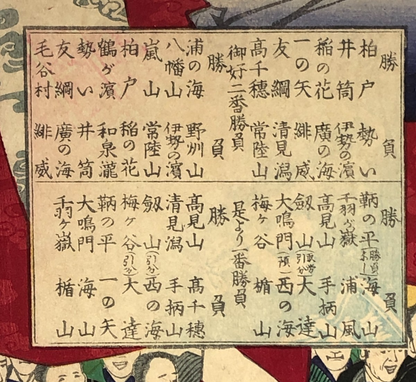 勝 負
柏戸 勢い
井筒 伊勢の濱
稲の花 廣の海
一の矢 緋威
友綱 清見潟
高千穂 常陸山
御好二番勝負
勝 負
浦の海 野州山
八幡山 伊勢の濱
嵐山 常陸山
柏戸 稲の花
鶴ヶ濱 和泉瀧
勢い 井筒
友綱 廣の海
毛谷村 緋威
勝 負
鞆の平 海山
千羽ヶ嶽 浦風
高見山 手柄山
劔山 大達
大鳴門(預)西の海
梅ヶ谷 楯山
是より一番勝負
勝 負
高見山 高千穂
清見潟 手柄山
劔山(引分)西の海
梅ヶ谷(引分)大達
鞆の平 一の矢
大鳴門 海山
千羽ヶ嶽 楯山